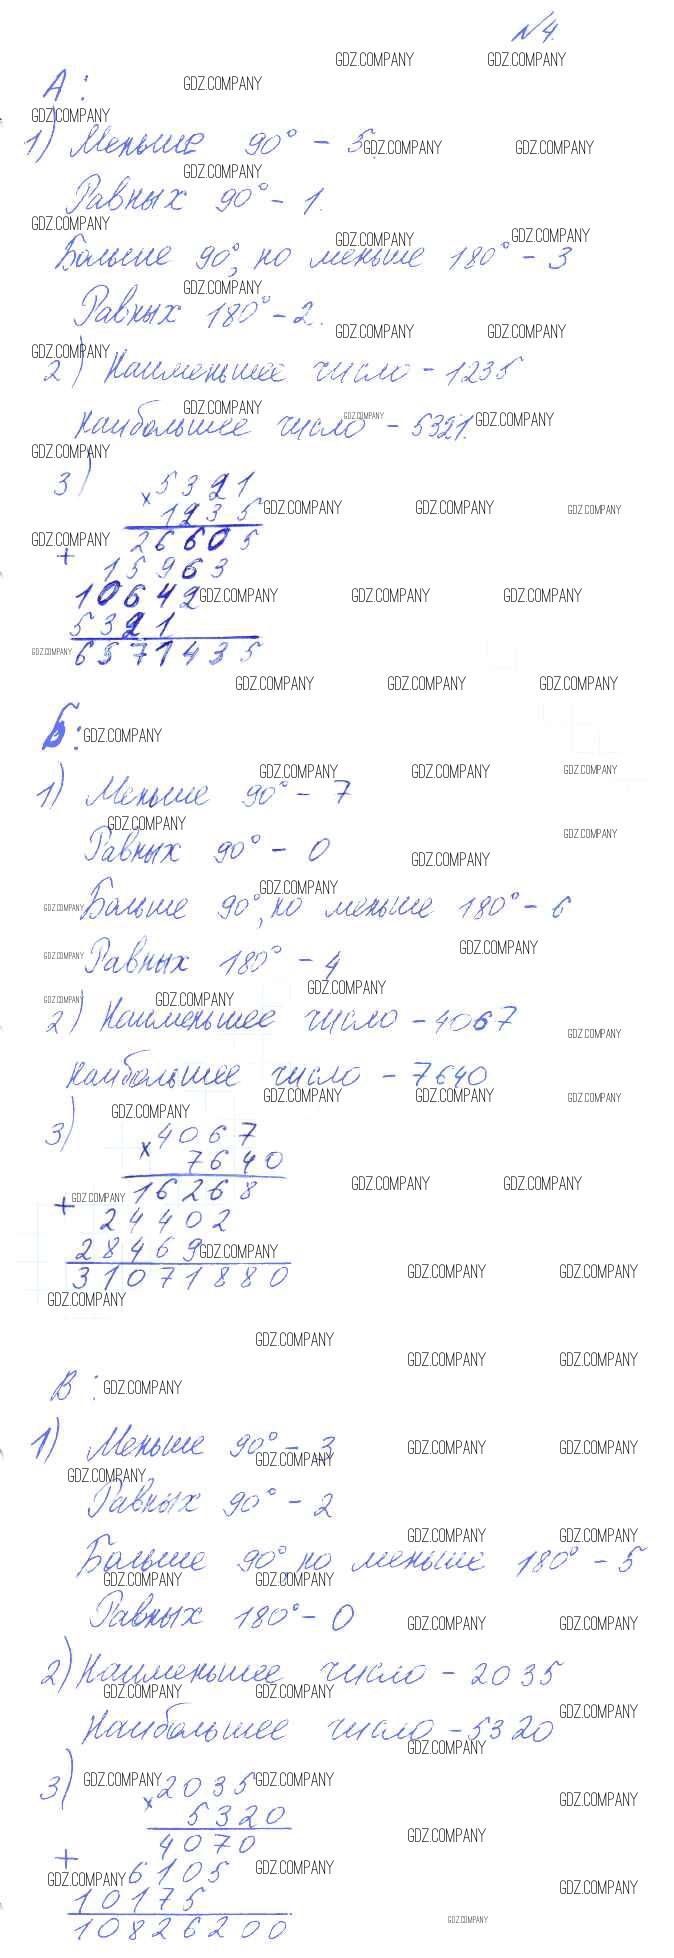 №4.
А:
1) Меньше 90° - 5.
Равных 90° - 1.
Больше 90°, но меньше 180° - 3
Равных 180° - 2.
2) Наименьшее число - 1235
Наибольшее число - 5321.
3) × 5321
1235
26605
+ 15963
10642
5321
6571435
Б:
1) Меньше 90° - 7
Равных 90° - 0
Больше 90°, но меньше 180° - 6
Равных 180° - 4
2) Наименьшее число - 4067
Наибольшее число - 7640
3) × 4067
7640
16268
+ 24402
28469
31071880
В:
1) Меньше 90° - 3
Равных 90° - 2
Больше 90°, но меньше 180° - 5
Равных 180° - 0
2) Наименьшее число - 2035
Наибольшее число - 5320
3) × 2035
5320
4070
+ 6105
10175
10826200
GDZ.COMPANY